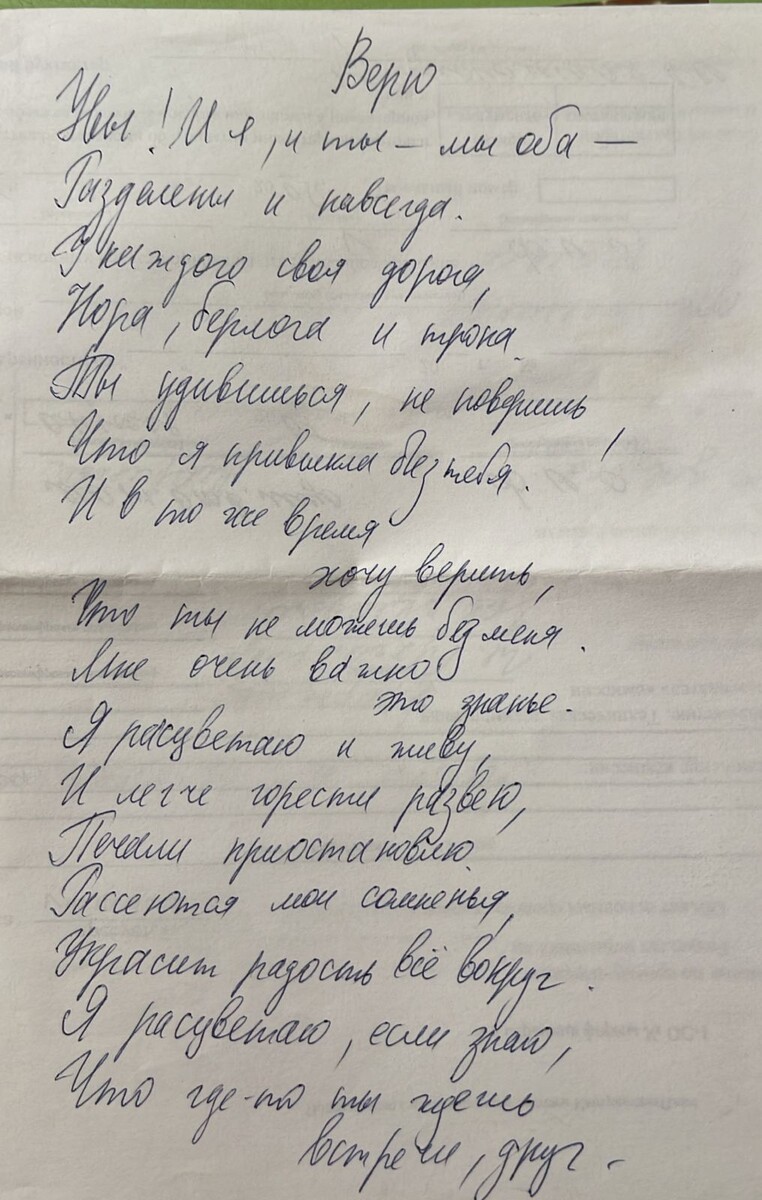 Верю
Увы! И я, и ты – мы оба –
Разделены и навсегда.
У каждого своя дорога,
Нора, берлога и тропа.
Ты удивишься, не поверишь,
Что я привыкла без тебя!
И в то же время
хочу верить,
Что ты не можешь без меня.
Мне очень важно
это знанье.
Я расцветаю и живу,
И легче горести развею,
Печали приостановлю.
Рассеются мои сомненья,
Украсит радость всё вокруг.
Я расцветаю, если знаю,
Что где-то ты ждешь
встречи, друг.